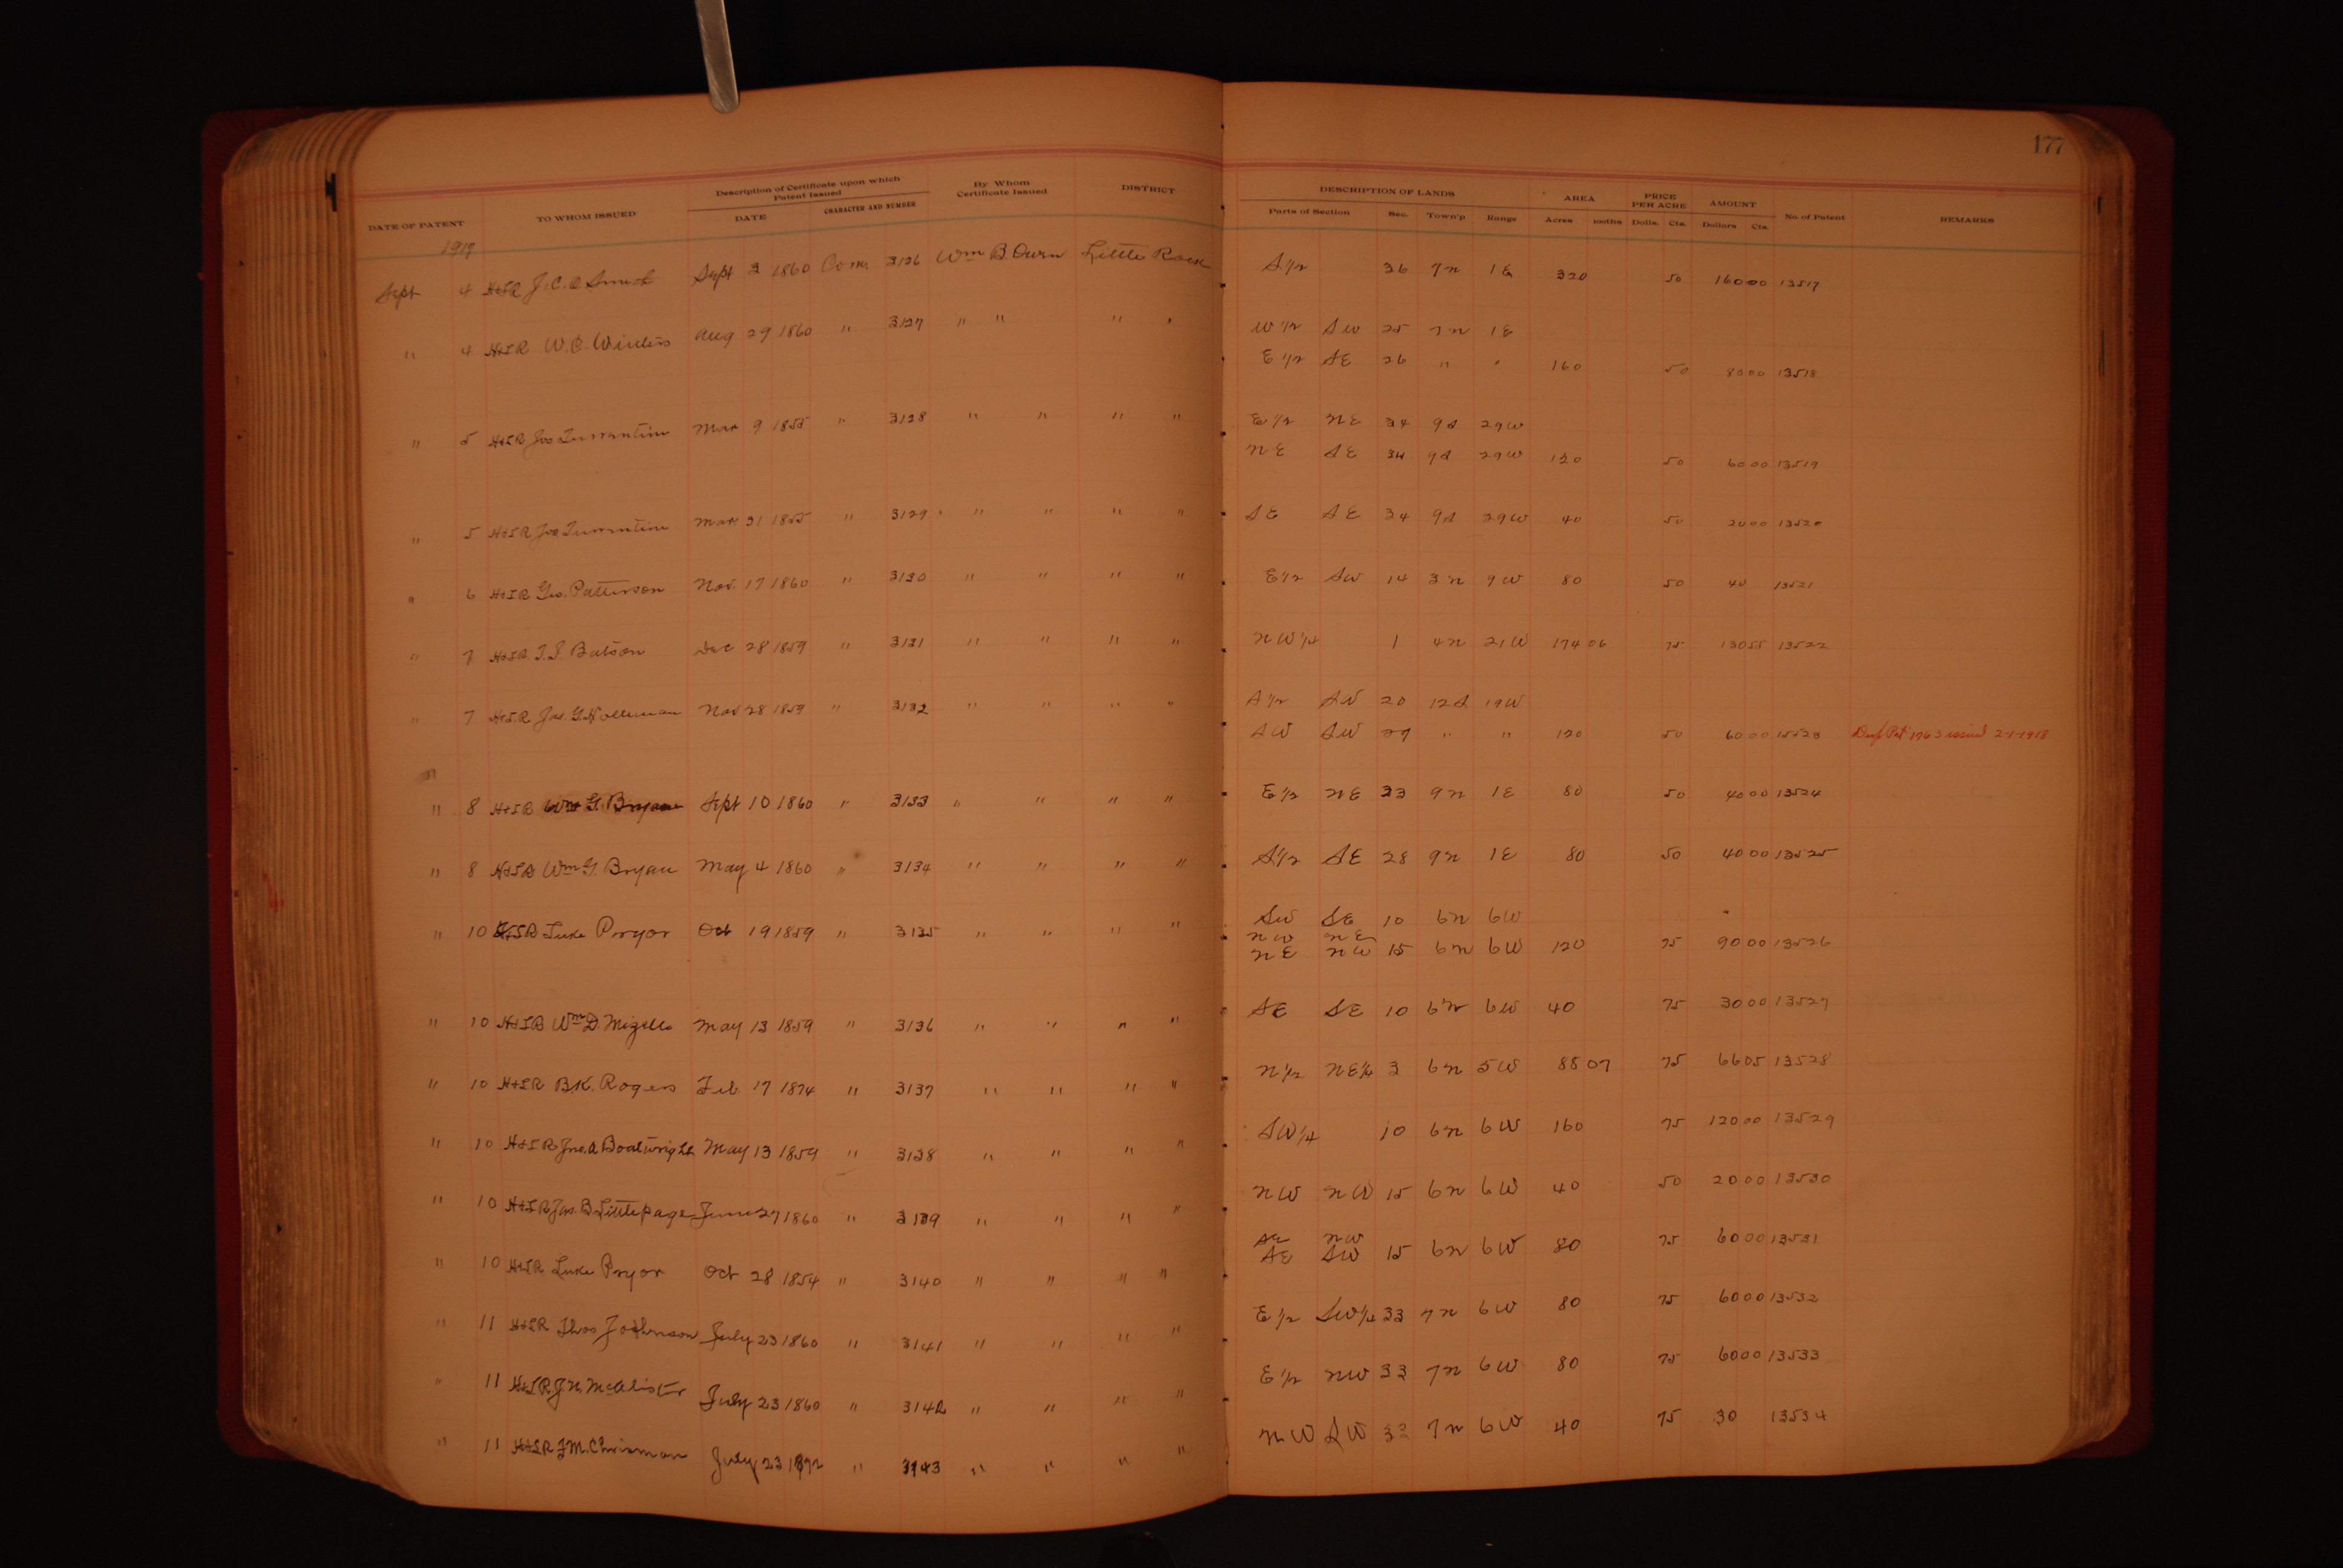 177
DATE OF PATENT TO WHOM ISSUED Description of Certificate upon which Patent Issued DATE CHARACTER AND NUMBER By Whom Certificate Issued DISTRICT DESCRIPTION OF LANDS Parts of Section Sec. Town'p Range AREA Acres 100ths PRICE PER ACRE Dolls. Cts. AMOUNT Dollars Cts. No. of Patent REMARKS
1917
Sept 4 H&IR J.C.O. Smith Sept 3 1860 Com. 3126 Wm B. Owen Little Rock S 1/2 36 7n 1E 320 50 160 00 13517
" 4 H&IR W.C. Winters Aug 29 1860 " 3127 " " " " W 1/2 SW 25 7n 1E
E 1/2 SE 26 " " 160 50 80 00 13518
" 5 H&IR Jos Turrentine Mar 9 1855 " 3128 " " " " E 1/2 NE 34 9S 29W
NE SE 34 9S 29W 120 50 60 00 13519
" 5 H&IR Jos Turrentine Mar 31 1855 " 3129 " " " " SE SE 34 9S 29W 40 50 20 00 13520
" 6 H&IR Geo. Patterson Nov. 17 1860 " 3130 " " " " E 1/2 SW 14 3n 9W 80 50 40 13521
" 7 H&IR T.S. Batson Dec 28 1859 " 3131 " " " " NW 1/4 1 4n 21W 174 06 75 130 55 13522
" 7 H&IR Jas. G. Holleman Nov 28 1859 " 3132 " " " " S 1/2 SW 20 12S 19W
SW SW 27 " " 120 50 60 00 13523 Dup Pat 1763 issued 2-1-1918
"
" 8 H&IR Wm G. Bryan Sept 10 1860 " 3133 " " " " E 1/2 NE 33 9n 1E 80 50 40 00 13524
" 8 H&IR Wm G. Bryan May 4 1860 " 3134 " " " " S 1/2 SE 28 9n 1E 80 50 40 00 13525
" 10 H&IR Luke Pryor Oct 19 1859 " 3135 " " " " SW SE 10 6n 6W
NW NE
NE NW 15 6n 6W 120 75 90 00 13526
" 10 H&IR Wm D. Mizelle May 13 1859 " 3136 " " " " SE SE 10 6n 6W 40 75 30 00 13527
" 10 H&IR B.K. Rogers Feb. 17 1874 " 3137 " " " " N 1/2 NE 1/4 3 6n 5W 88 07 75 66 05 13528
" 10 H&IR Jno. A Boatwright May 13 1859 " 3138 " " " " SW 1/4 10 6n 6W 160 75 120 00 13529
" 10 H&IR Jas. B. Littlepage June 27 1860 " 3139 " " " " NW NW 15 6n 6W 40 50 20 00 13530
" 10 H&IR Luke Pryor Oct 28 1854 " 3140 " " " " SE NW
SE SW 15 6n 6W 80 75 60 00 13531
" 11 H&IR Thos Johnson July 23 1860 " 3141 " " " " E 1/2 SW 1/4 33 7n 6W 80 75 60 00 13532
" 11 H&IR J.N. McAlister July 23 1860 " 3142 " " " " E 1/2 NW 33 7n 6W 80 75 60 00 13533
" 11 H&IR J.M. Chrisman July 23 " 3143 " " " " NW SW 33 7n 6W 40 75 30 13534